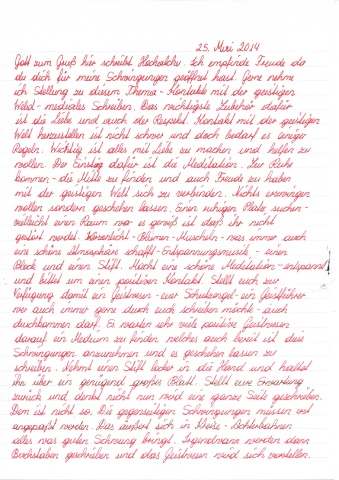 25. Mai 2014
Gott zum Gruß hier schreibt Hacharchu. Ich empfinde Freude da
du dich für meine Schwingungen geöffnet hast. Gerne nehme
ich Stellung zu diesem Thema - Kontakte mit der geistigen
Welt - mediales Schreiben. Das wichtigste Zubehör dafür
ist die Liebe und auch der Respekt. Kontakt mit der geistigen
Welt herzustellen ist nicht schwer und doch bedarf es einiger
Regeln. Wichtig ist alles mit Liebe zu machen und helfen zu
wollen. Der Einstieg dafür ist die Meditation. Zur Ruhe
kommen - die Mitte zu finden und auch Freude zu haben
mit der geistigen Welt sich zu verbinden. Nichts erzwingen
wollen sondern geschehen lassen. Einen ruhigen Platz suchen -
vielleicht einen Raum wo es gewiß ist daß ihr nicht
gestört werdet. Kerzenlicht - Blumen - Muscheln - was immer auch
eine schöne Atmosphäre schafft - Entspannungsmusik - einen
Block und einen Stift. Macht eine schöne Meditation - entspannt
und bittet um einen positiven Kontakt. Stellt euch zur
Verfügung damit ein Geistwesen - euer Schutzengel - ein Geistführer
wer auch immer gerne durch euch schreiben möchte - auch
durchkommen darf. Es warten sehr viele positive Geistwesen
darauf ein Medium zu finden welches auch bereit ist dies
Schwingungen anzunehmen und es geschehen lassen zu
schreiben. Nehmt einen Stift locker in die Hand und haltet
ihn über ein genügend großes Blatt. Stellt eure Erwartung
zurück und denkt nicht nun wird eine ganze Seite geschrieben.
Dem ist nicht so. Die gegenseitigen Schwingungen müssen erst
angepaßt werden. Das äußert sich in Kreise - Achterbahnen
alles was guten Schwung bringt. Irgendwann werden dann
Buchstaben geschrieben und das Geistwesen wird sich vorstellen.